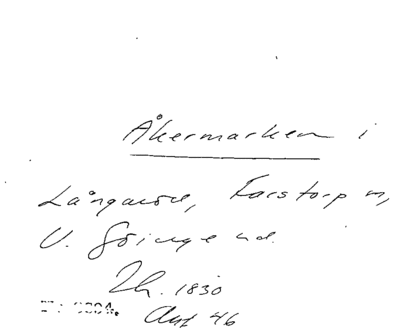 Åkermarken i
Långaröd, Farstorp n,
V. Göinge hd.
Th. 1830
Ant 46